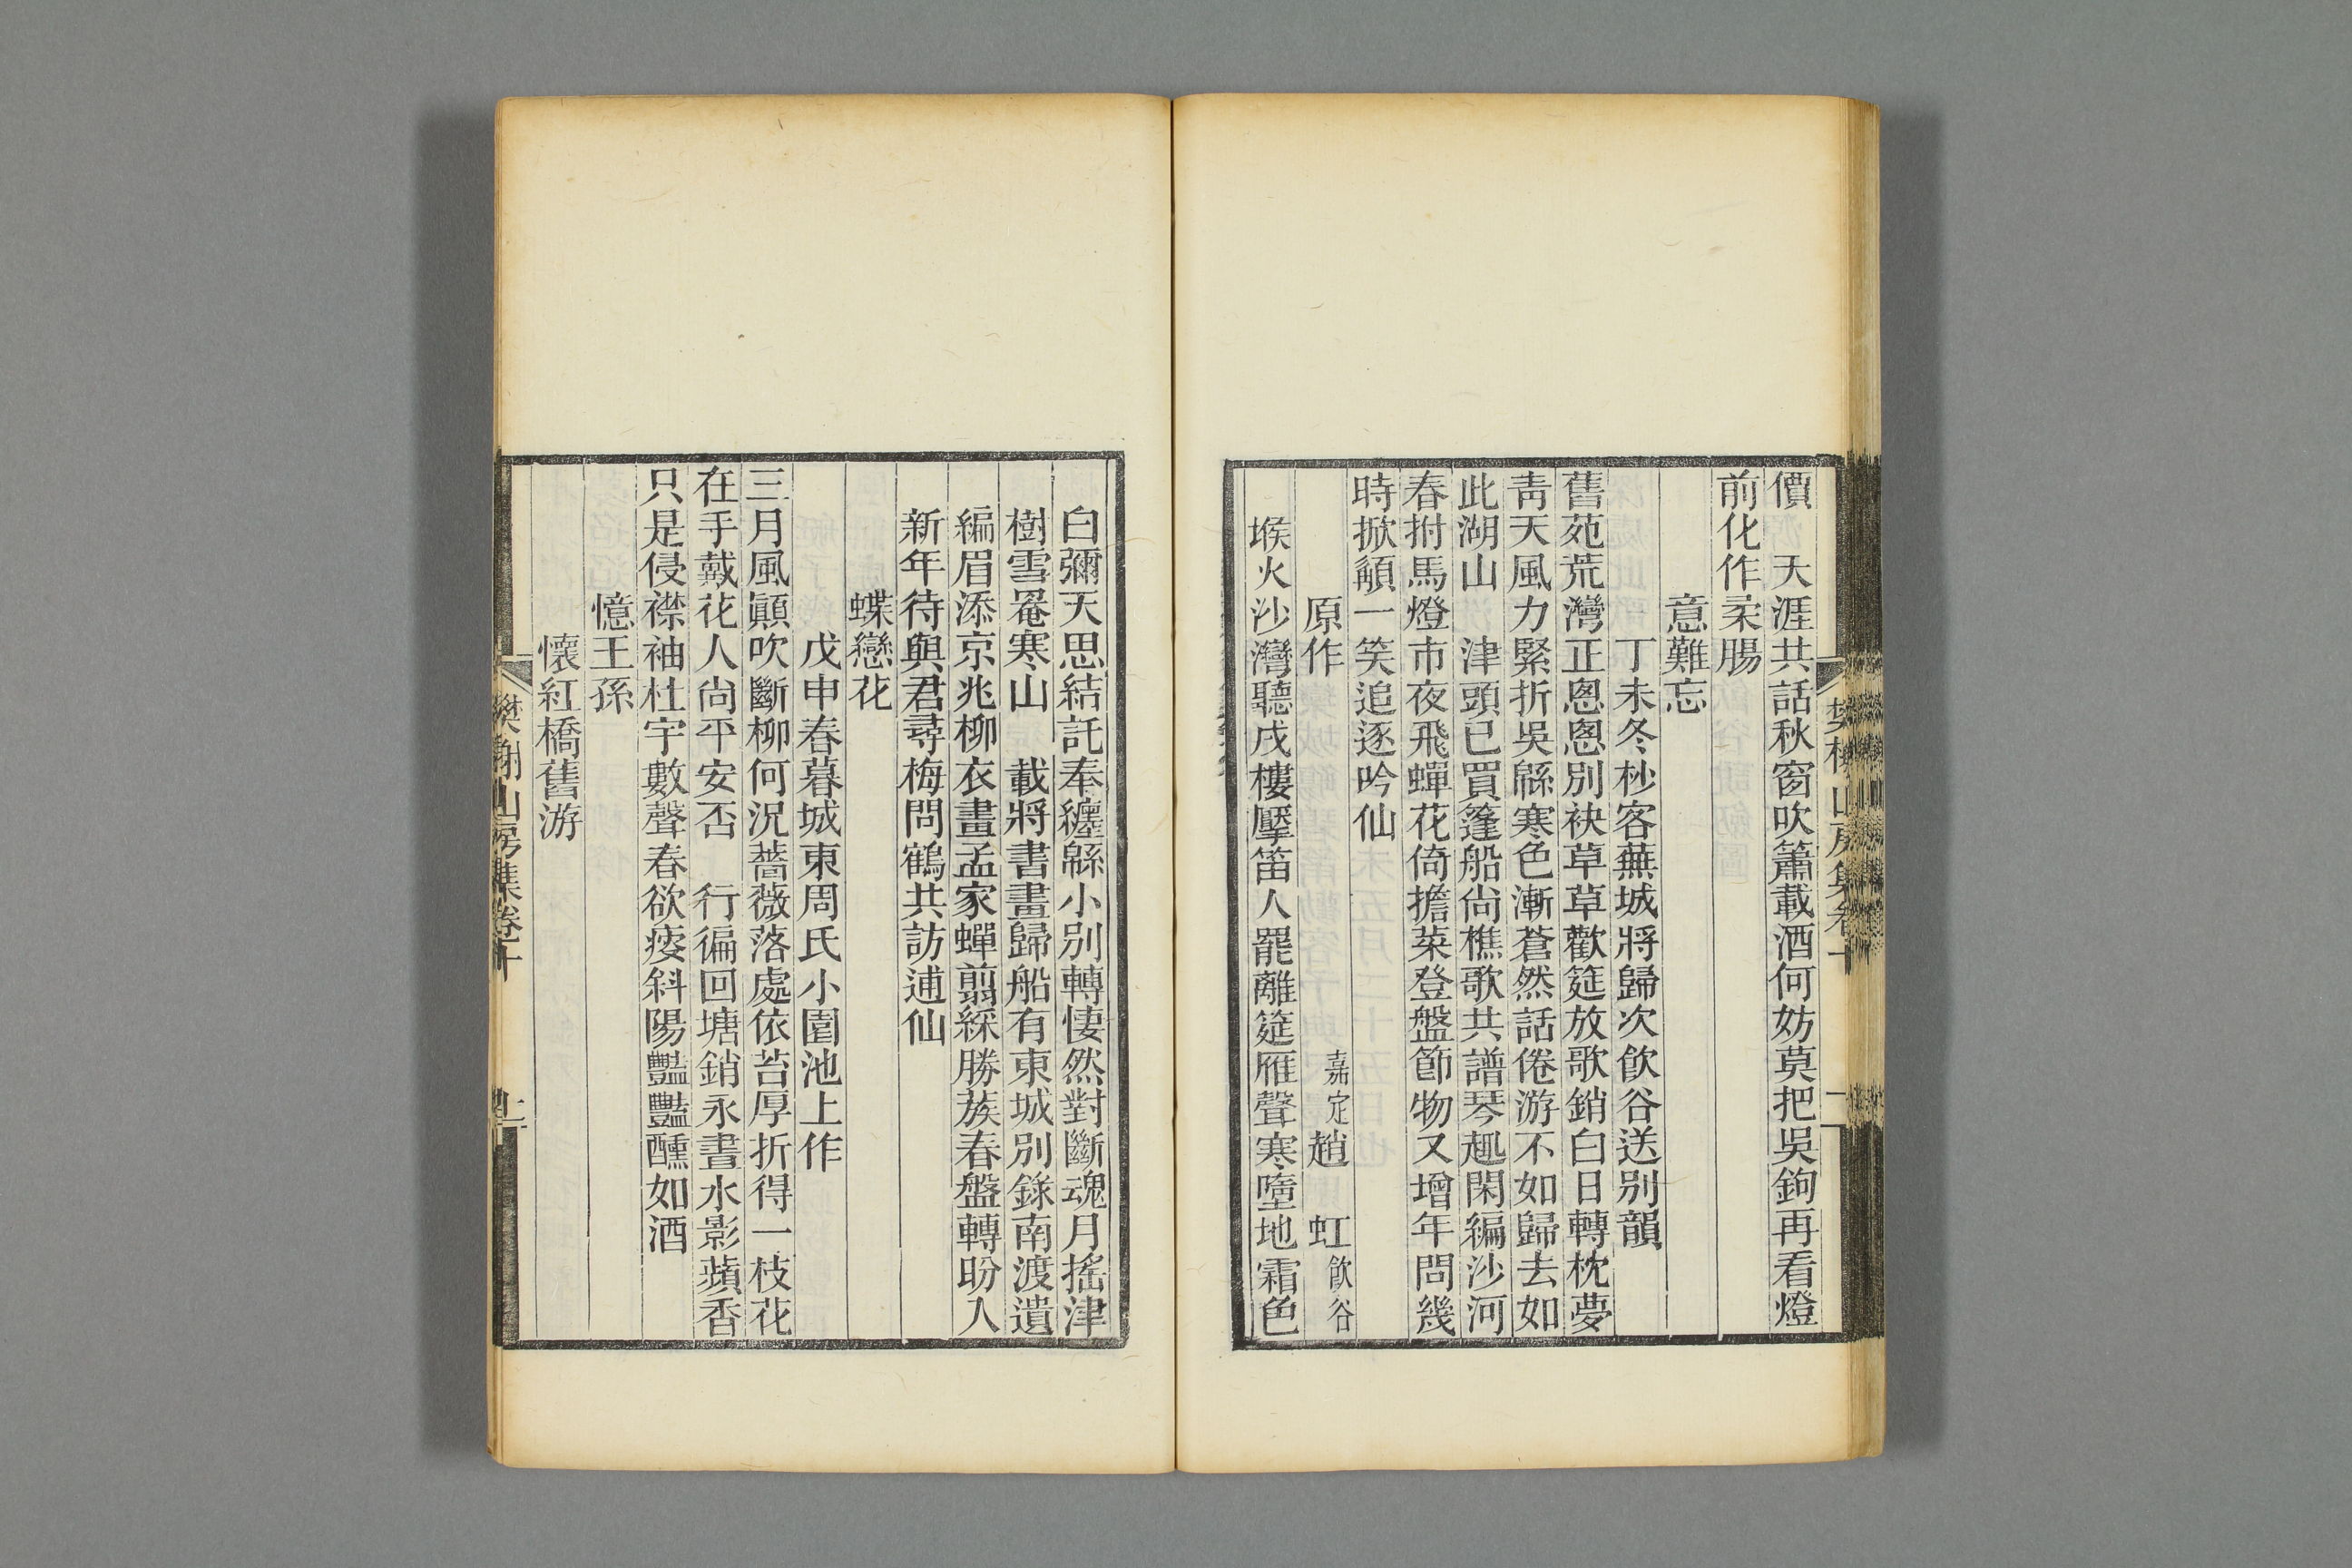 價　天涯共話秋窗吹簫載酒何妨莫把吳鉤再看燈
前化作柔腸
意難忘
丁未冬杪客蕪城將歸次飮谷送别韻
舊苑荒灣正悤悤別袂草草歡筵放歌銷白日轉枕夢
靑天風力緊折吳緜寒色漸蒼然話倦游不如歸去如
此湖山　津頭已買篷船尙樵歌共譜琴趣閑編沙河
春拊馬燈市夜飛蟬花倚擔菜登盤節物又增年問幾
時掀顲一笑追逐吟仙
原作　嘉定趙　虹飮谷
堠火沙灣聽戍樓擪笛人罷離筵雁聲寒墮地霜色
白彌天思結託奉纏緜小別轉悽然對斷魂月搖津
樹雪罨寒山　載將書畫歸船有東城別錄南渡遺
編眉添京兆柳衣畫孟家蟬翦綵勝蔟春盤轉盼人
新年待與君尋梅問鶴共訪逋仙
蝶戀花
戊申春暮城東周氏小園池上作
三月風顚吹斷柳何況薔薇落處依苔厚折得一枝花
在手戴花人尙平安否　行徧回塘銷永晝水影蘋香
只是侵襟袖杜宇數聲春欲痿斜陽豔豔醺如酒
憶王孫
懷紅橋舊游
樊榭山房集卷十